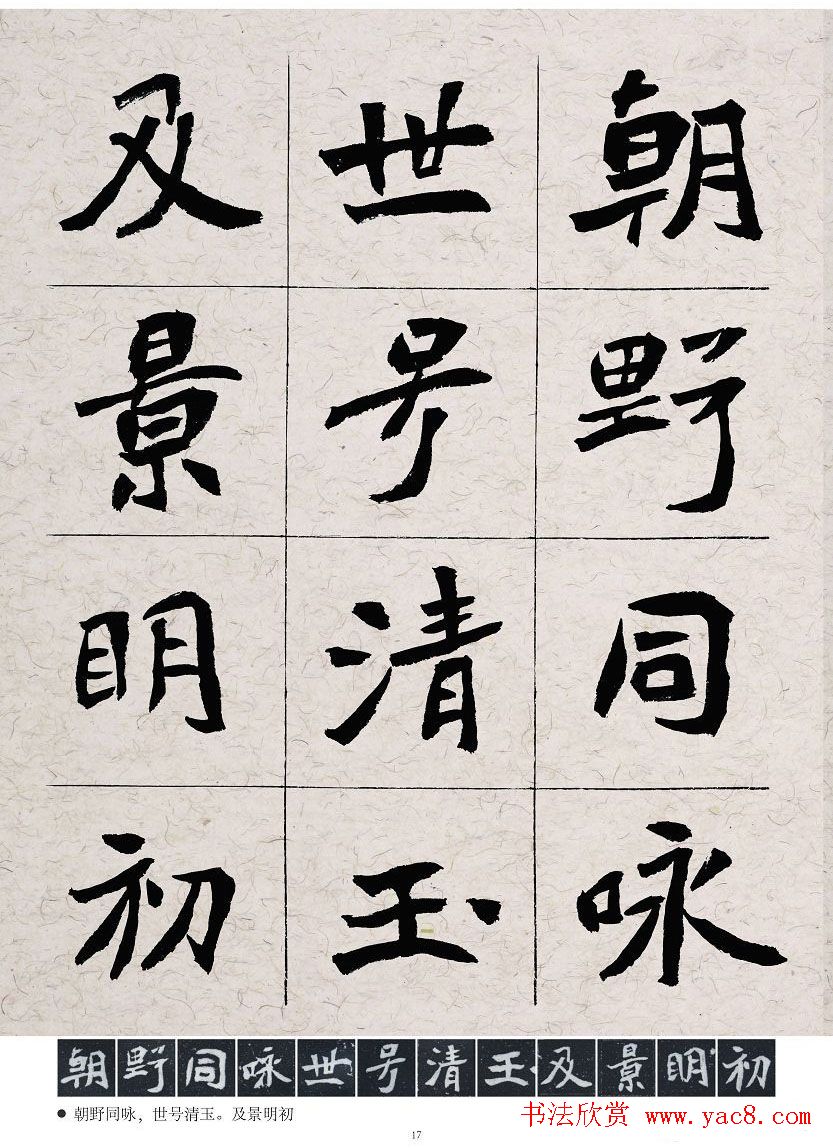 朝野同咏
世号清玉
及景明初
朝野同咏世号清玉及景明初
● 朝野同咏，世号清玉。及景明初
书法欣赏 www.yac8.com
17